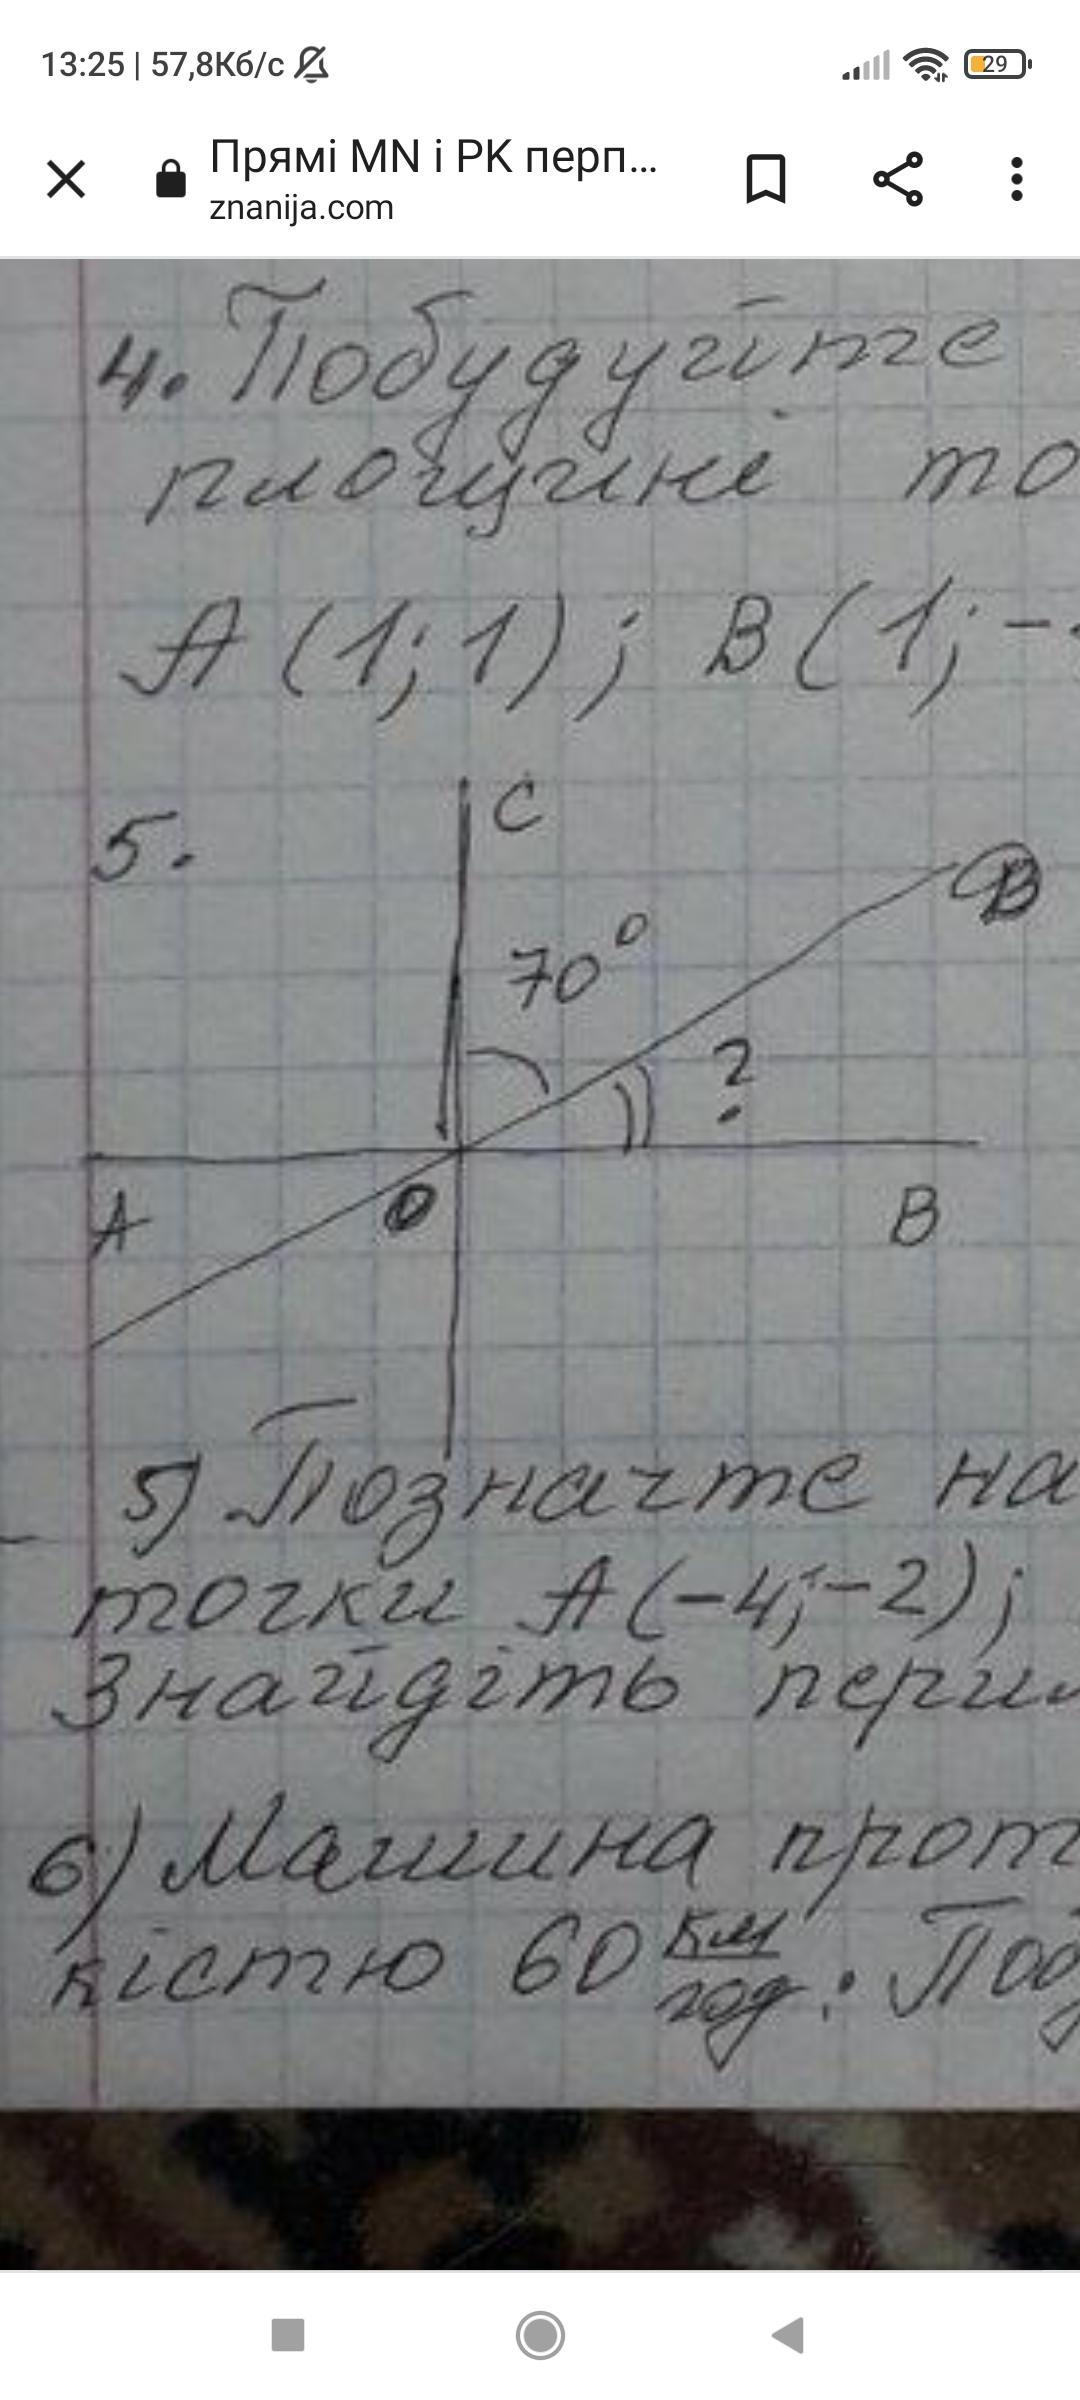 13:25 | 57,8Кб/с
29
Прямі MN і PK перп...
znanija.com
4. Побудуйте
площині то
A (1; 1) ; B (1; -
5.
C
B
70°
?
A
O
B
5) Позначте на
точки A(-4; -2);
Знайдіть пери
6) Машина прот
кістю 60 км/год. Поб